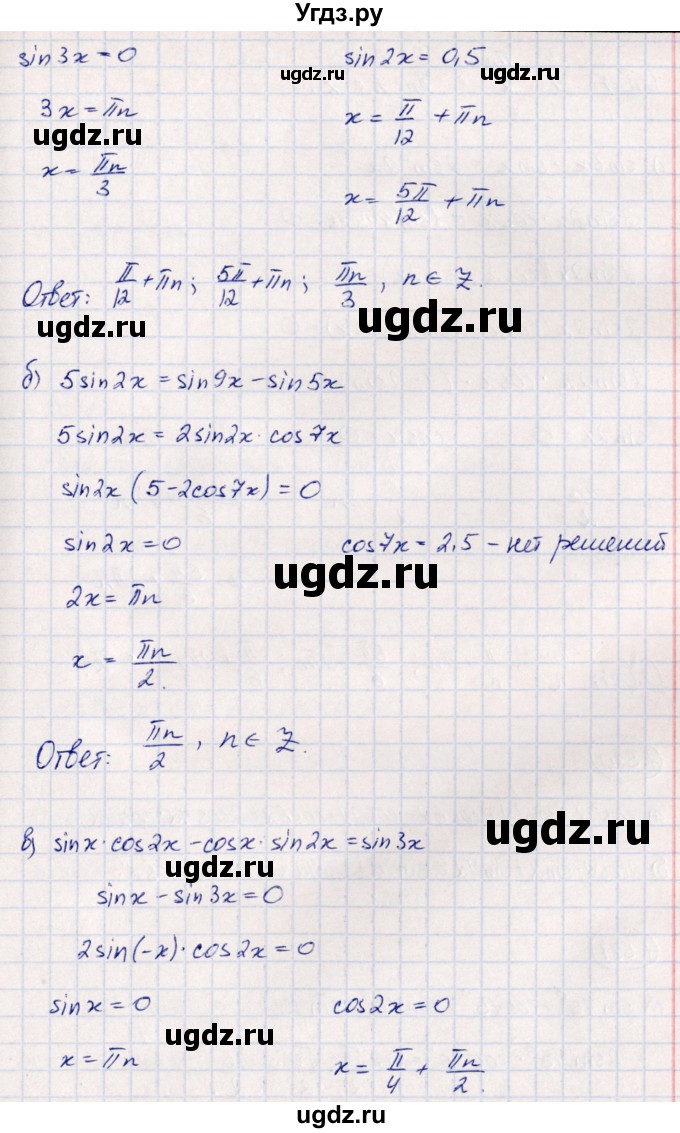 Угдз.ру
sin3x = 0 sin2x = 0,5
ugdz.ru ugdz.ru
3x = πn x = π/12 + πn
ugdz.ru
x = πn/3 x = 5π/12 + πn
Ответ: π/12 + πn; 5π/12 + πn; πn/3, n ∈ Z.
ugdz.ru ugdz.ru
б) 5sin2x = sin9x - sin5x
5sin2x = 2sin2x · cos7x
sin2x (5 - 2cos7x) = 0
sin2x = 0 cos7x = 2,5 - нет решений
ugdz.ru
2x = πn
x = πn/2.
Ответ: πn/2, n ∈ Z.
ugdz.ru
в) sinx · cos2x - cosx · sin2x = sin3x
ugdz.ru
sinx - sin3x = 0
2sin(-x) · cos2x = 0
sinx = 0 cos2x = 0
ugdz.ru
x = πn x = π/4 + πn/2.
ugdz.ru